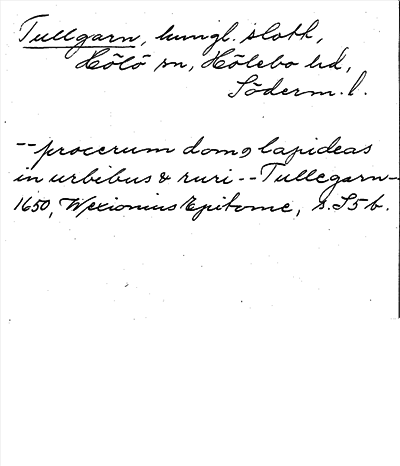 Tullgarn, kungl. slott,
Hölö sn, Hölebo hd,
Söderm. l.
--procerum domꝯ lapideas
in urbibus & ruri--Tullegarn--
1650, Wexionius Epitome, s. S5 b.